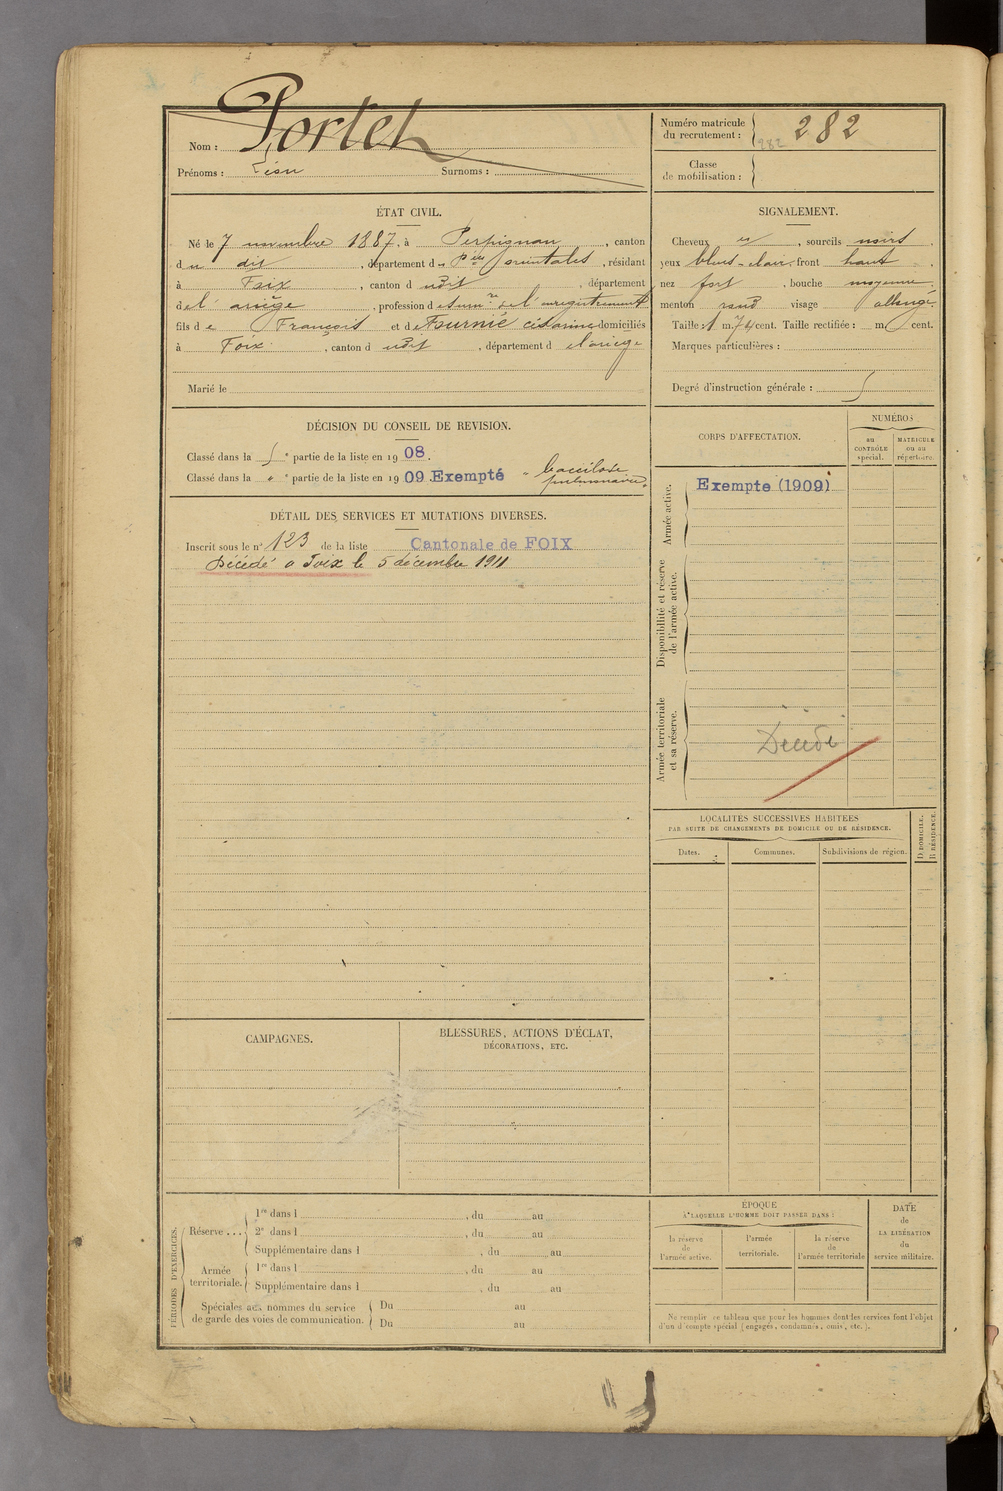 Nom : Portet
Prénoms : Léon Surnoms :
Numéro matricule
du recrutement : 282 282
Classe
de mobilisation :
ÉTAT CIVIL.
Né le 7 novembre 1887, à Perpignan, canton
du dit, département des Pées orientales, résidant
à Foix, canton d udit, département
de l'ariège, profession de de l'enregistrement
fils de François et de Fournié domiciliés
à Foix, canton d udit, département d el'ariege
Marié le
SIGNALEMENT.
Cheveux et, sourcils noirs
yeux bleus-clair, front haut
nez fort, bouche moyenne
menton rond visage allongé
Taille : 1 m. 74 cent. Taille rectifiée : m. cent.
Marques particulières :
Degré d'instruction générale :
DÉCISION DU CONSEIL DE REVISION.
Classé dans la e partie de la liste en 1908.
Classé dans la " e partie de la liste en 1909 Exempté "bacillose
pulmonaire"
DÉTAIL DES SERVICES ET MUTATIONS DIVERSES.
Inscrit sous le n° 123 de la liste Cantonale de FOIX
Décédé à Foix le 5 décembre 1911
CORPS D'AFFECTATION.
NUMÉROS
au
CONTRÔLE
spécial.
MATRICULE
ou au
répertoire.
Armée active.
Exempté (1909)
Disponibilité et réserve
de l'armée active.
Armée territoriale
et sa réserve.
Décédé
LOCALITÉS SUCCESSIVES HABITÉES
PAR SUITE DE CHANGEMENTS DE DOMICILE OU DE RÉSIDENCE.
Dates.
Communes.
Subdivisions de région.
D DOMICILE.
R RÉSIDENCE.
CAMPAGNES.
BLESSURES, ACTIONS D'ÉCLAT,
DÉCORATIONS, ETC.
PÉRIODES D'EXERCICES.
Réserve...
1re dans l , du au
2e dans l , du au
Supplémentaire dans l , du au
Armée
territoriale.
1re dans l , du au
Supplémentaire dans l , du au
Spéciales aux hommes du service
de garde des voies de communication.
Du au
Du au
ÉPOQUE
À LAQUELLE L'HOMME DOIT PASSER DANS :
la réserve
de
l'armée active.
l'armée
territoriale.
la réserve
de
l'armée territoriale
DATE
de
LA LIBÉRATION
du
service militaire.
Ne remplir ce tableau que pour les hommes dont les services font l'objet
d'un décompte spécial (engagés, condamnés, omis, etc.).